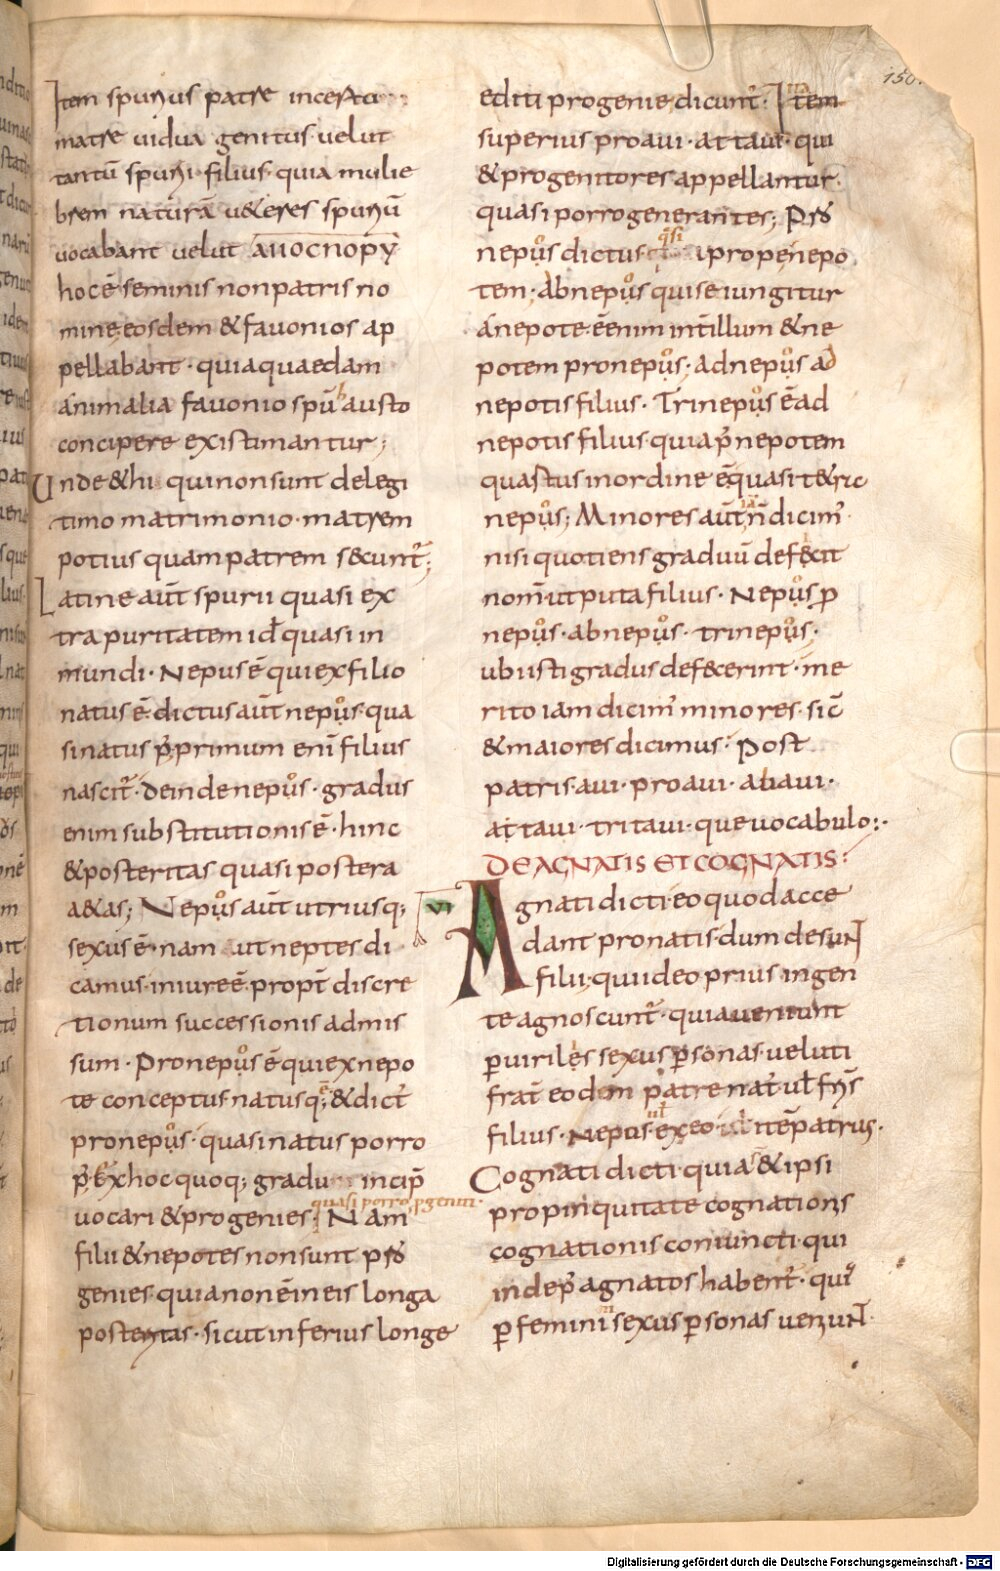 150.
Item spurius patre incerto
matre uidua genitus uelut
tantū spurii filius· quia mulie
brem naturā u&eres spuriū
uocabant uelut ΑΠΟCΠΟΡΥ
hoc ē seminis non patris no
mine eosdem & fauonios ap
pellabant · quia quaedam
animalia fauonio spū hausto
concipere existimantur;
Unde & hi qui non sunt de legi
timo matrimonio· matrem
potius quam patrem secunt̄;
Latine aūt spurii quasi ex
tra puritatem id quasi in
mundi· Nepus ē qui ex filio
natus ē· dictus aūt nepus· qua
si natus p̄· primum enī filius
nascit̄· deinde nepus· gradus
enim substitutionis ē· hinc
& posteritas quasi postera
a&as; Nepus aūt utriusq;
sexus ē· nam ut neptes di
camus in iure ē propt̄ discre
tionum successionis admis
sum· Pronepus ē qui ex nepo
te conceptus natusq; ē & dict̄
pronepus· quasi natus porro
p̄· Ex hoc quoq; gradu incip̄
uocari & progenies· quasi porro genitu· Nam
filii & nepotes non sunt pro
genies· quia non ē in eis longa
posteritas· sicut inferius longe
editi progenie dicunt̄· Ita
superius proaui· attaui· qui
& progenitores appellantur·
quasi porro generantes; Pro
nepus dictus qsi prope nepo
tem; abnepus qui seiungitur
a nepote ē enim int̄ illum & ne
potem pronepus; adnepus ad
nepotis filius· Trinepus ē ad
nepotis filius· quia p̄ nepotem
quartus in ordine ē quasi t&ric
nepus; Minores aūt n̄ dicim̄
nisi quotiens graduū def&cit
nom̄ ut puta filius· Nepus p
nepus· abnepus· trinepus·
ubi isti gradus defecerint· me
rito iam dicim̄ minores· sic̄
& maiores dicimus· Post
patris· aui· proaui· abaui·
attaui· tritaui· que uocabulo:·
DE AGNATIS ET COGNATIS:
VI Agnati dicti eo quod acce
dant pro natis dum desunt
filii· qui ideo prius in gen
te agnoscunt̄· quia ueniunt
p uirilis sexus psonas· ueluti
frat̄ eodem patre nat· ul fris
filius· Neptis ex eo· ul item patrus·
Cognati dicti quia & ipsi
propinquitate cognations
cognationis coniuncti· qui
inde p agnatos habent̄· quia
p feminini sexus psonas ueniunt
Digitalisierung gefördert durch die Deutsche Forschungsgemeinschaft - DFG